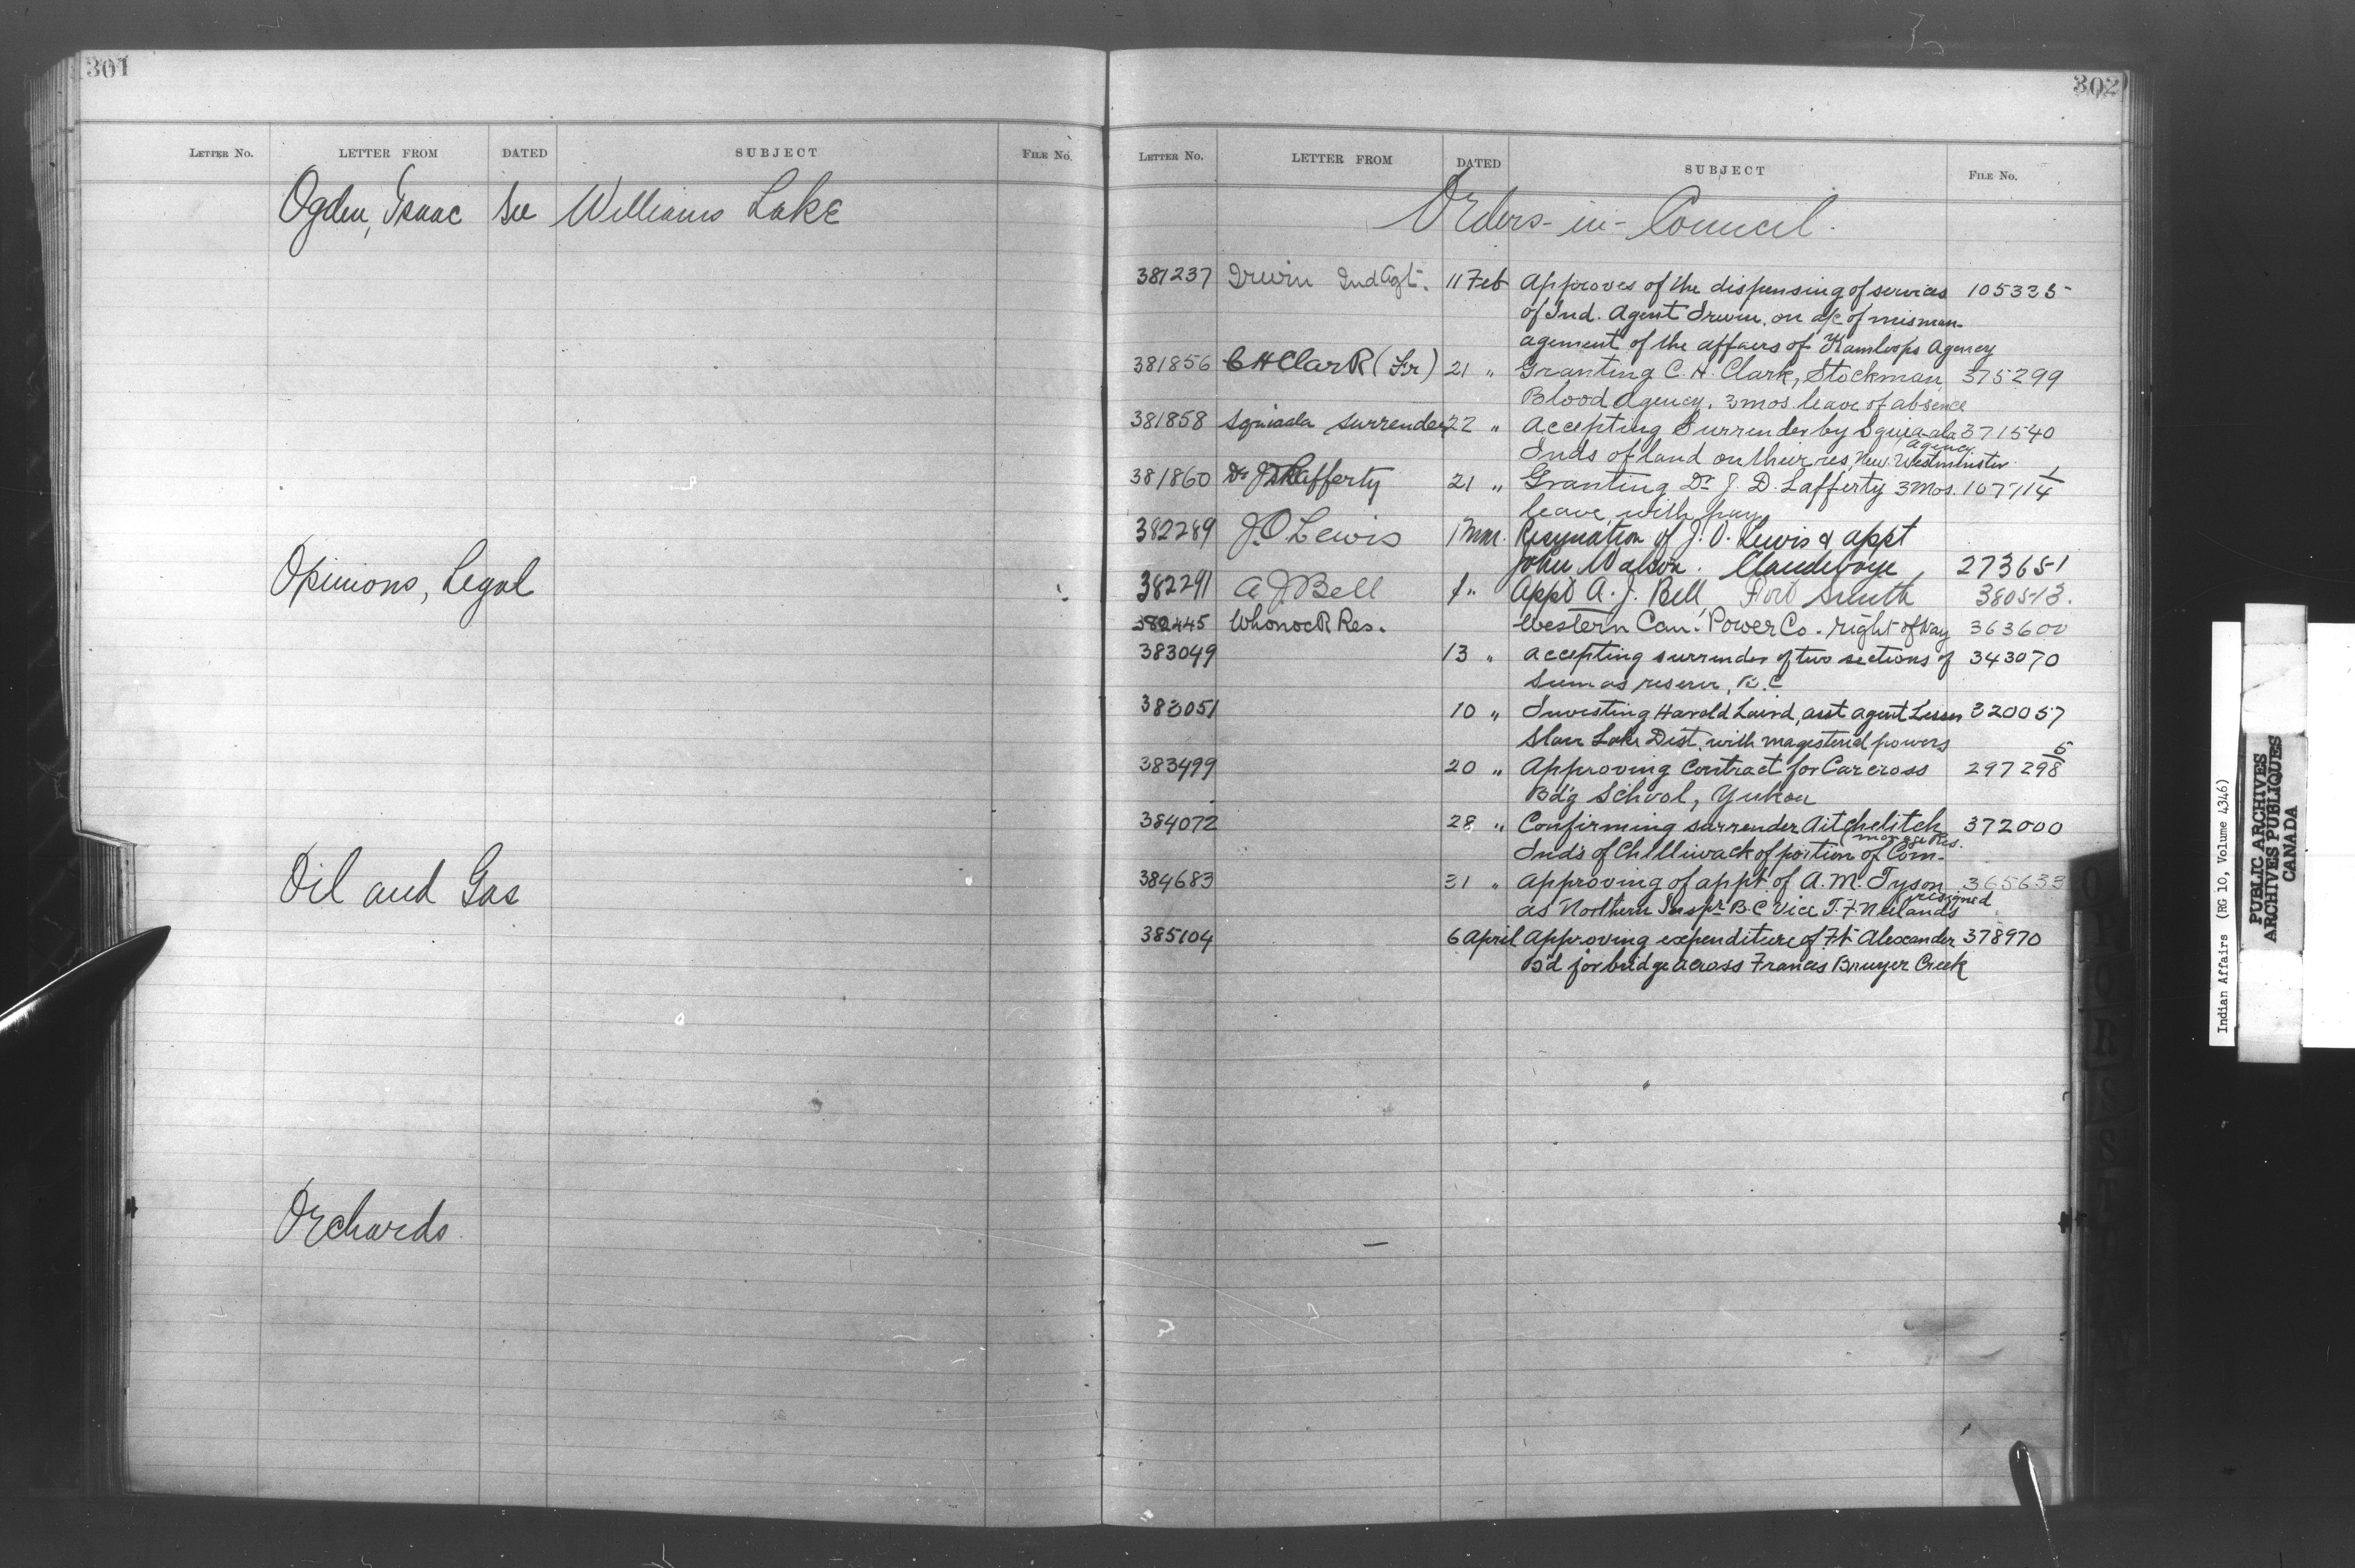 301
LETTER NO. LETTER FROM DATED SUBJECT FILE No.
Ogden, Isaac See Williams Lake
Opinions, Legal
Oil and Gas
Orchards
302
LETTER NO. LETTER FROM DATED SUBJECT FILE NO.
Orders-in-Council.
381237 Irwin Ind Agt. 11 Feb Approves of the dispensing of services 105335
of Ind. Agent Irwin, on a/c of misman-
agement of the affairs of Kamloops Agency
381856 C H Clark 21 " Granting C. H. Clark, Stockman, 375299
Blood Agency, 3 mos leave of absence
381858 Squiaala surrender 22 " Accepting Surrender by Squia-ala 371540
Inds of land on their res, New Westminster Agency
381860 Dr J D Lafferty 21 " Granting Dr J. D. Lafferty 3 Mos. 107114
leave with pay
382289 J. O Lewis 1 Mar. Resignation of J. O. Lewis & appt
John Watson. Clandeboye 273651
382291 A J Bell 1 " Appt A. J. Bell, Fort Smith 380513.
382445 Whonock Res. Western Can. Power Co. right of Way 363600
383049 13 " accepting surrender of two sections of 343070
Sumas reserve, B.C
383051 10 " Investing Harold Laird, asst agent Lesser 320057
Slave Lake Dist. with magisterial powers
383499 20 " Approving Contract for Carcross 297298 5
Bd'g School, Yukon
384072 28 " Confirming surrender Aitchelitch 372000
Inds of Chilliwack of portion of Com-
monage Res.
384683 31 " Approving of appt. of A. M. Tyson 365633
as Northern Inspr B.C vice T. F. Neilands resigned
385104 6 April Approving expenditure of Ft Alexander 378970
B'd for bridge across Francis Bruyer Creek
Indian Affairs (RG 10, Volume 4346)
PUBLIC ARCHIVES
ARCHIVES PUBLIQUES
CANADA